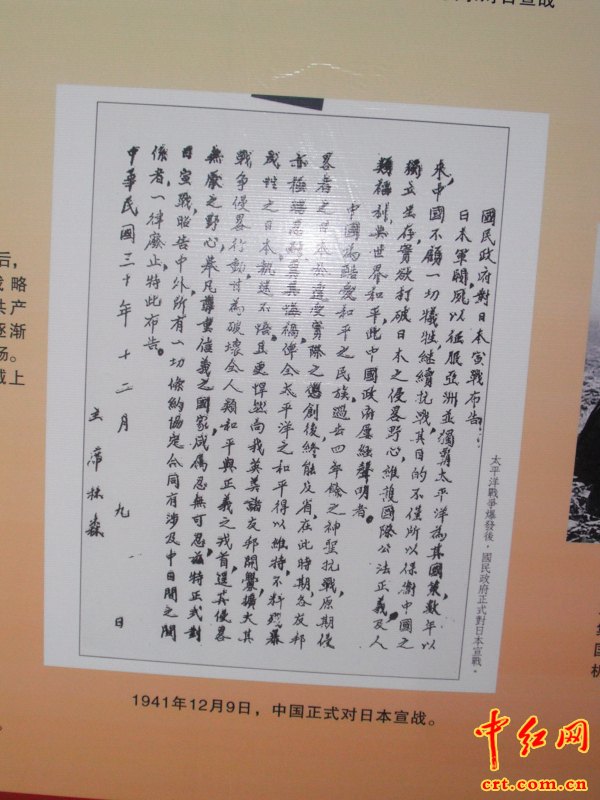 對日宣战
國民政府對日本宣戰布告:
日本軍閥夙以征服亞洲並獨霸太平洋為其國策,數年以
來,中國不顧一切犧牲,繼續抗戰,其目的不僅所以保衛中國之
獨立生存,實欲打破日本之侵畧野心,維護國際公法正義及人
類福利與世界和平,此中國政府屢經聲明者。
中國為酷愛和平之民族,過去四年餘之神聖抗戰,原期侵
畧者之日本於遭受實際之懲創後,終能反省,在此時期,各友邦
亦極端忍耐,冀其悔禍,俾全太平洋之和平得以維持,不料殘暴
成性之日本,執迷不悟,且更悍然向我英美諸友邦開釁,擴大其
戰爭侵畧行動,甘為破壞全人類和平與正義之戎首,逞其侵畧
無厭之野心,舉凡尊重信義之國家,咸屬忍無可忍,茲特正式對
日宣戰,昭告中外,所有一切條約協定合同有涉及中日間之關
係者,一律廢止,特此布告。
中華民國三十年十二月九日
主席林森
太平洋戰爭爆發後,國民政府正式對日本宣戰。
1941年12月9日,中国正式对日本宣战。
后,
战略
共产
逐渐
场。
战上
中红网
crt.com.cn